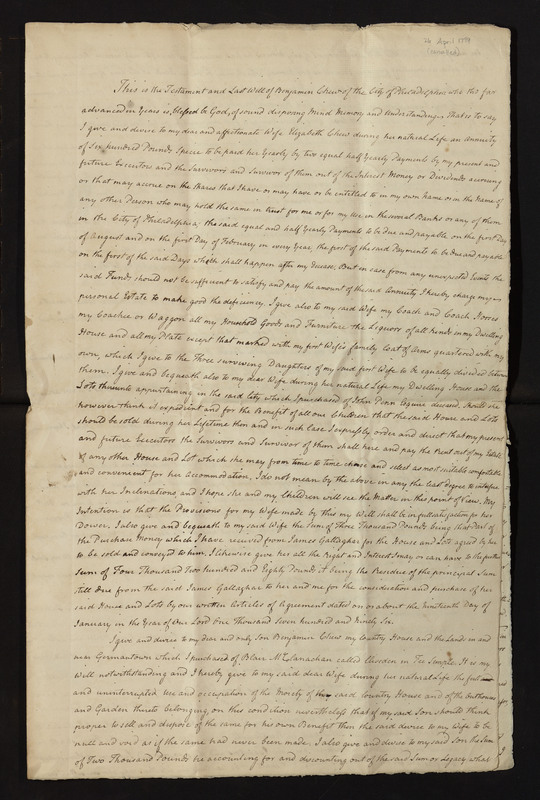 24 April 1799
This is the Testament and Last Will of Benjamin Chew of the City of Philadelphia who tho' far
advanced in Years is, blessed be God, of sound disposing Mind Memory and Understanding. That is to say
I give and devise to my dear and affectionate Wife Elizabeth Chew during her natural Life an Annuity
of Six hundred Pounds Specie to be paid her Yearly by two equal half Yearly Payments by my present and
future Executors and the Survivors and Survivor of them out of the Interest Money or Dividends accruing
or that may accrue on the Shares that I have or may have or be entitled to in my own Name or in the Name of
any other Person who may hold the same in trust for me or for my Use in the several Banks or any of them
in the City of Philadelphia; the said equal and half Yearly Payments to be due and payable on the first Day
of August and on the first Day of February in every Year, the first of the said Payments to be due and payable
on the first of the said Days which shall happen after my Decease. But in case from any unexpected Events the
said Funds should not be sufficient to satisfy and pay the amount of the said Annuity I hereby charge my
personal Estate to make good the deficiency. I give also to my said Wife my Coach and Coach Horses
my Coachee or Waggon all my Household Goods and Furniture the Liquors of all kinds in my Dwelling
House and all my Plate except that marked with my first Wife's family Coat of Arms quartered with my
own, which I give to the Three surviving Daughters of my said first Wife to be equally divided between
them. I give and bequeath also to my dear Wife during her natural Life my Dwelling House and the
Lots thereunto appurtaining in the said City which I purchased of John Penn Esquire deceased. Should she
however think it expedient and for the Benefit of all our Children that the said House and Lots
should be sold during her Lifetime then and in such case I expressly order and direct that my present
and future Executors the Survivors and Survivor of them shall hire and pay the Rent out of my Estate
of any other House and Lot which she may from time to time chuse and select as most suitable comfortable
and convenient for her Accommodation. I do not mean by the above in any the least degree to interfere
with her Inclinations, and I hope she and my Children will see the Matter in this point of View. My
Intention is that the Provisions for my Wife made by this my Will shall be in full satisfaction for her
Dower. I also give and bequeath to my said Wife the Sum of Three Thousand Pounds being that Part of
the Purchase Money which I have received from James Gallagher for the House and Lots agreed by her
to be sold and conveyed to him. I likewise give her all the Right and Interest I may or can have to the further
Sum of Four Thousand Two hundred and Eighty Pounds it being the Residue of the principal Sum
still due from the said James Gallaghar to her and me for the consideration and purchase of her
said House and Lots by our written Articles of Agreement dated on or about the Nineteenth Day of
January in the Year of Our Lord One Thousand Seven hundred and Ninety Six.
I give and devise to my dear and only Son Benjamin Chew my Country House and the Lands in and
near Germantown which I purchased of Blair McClanachan called Cliveden in Fee Simple. It is my
Will notwithstanding and I hereby give to my said dear Wife during her natural Life the full
and uninterrupted Use and occupation of the Moiety of the said Country House and of the Outhouses
and Garden thereto belonging, on this condition nevertheless that if my said Son should think
proper to sell and dispose of the same for his own Benefit then the said devise to my Wife to be
null and void as if the same had never been made. I also give and devise to my said Son the Sum
of Two Thousand Pounds he accounting for and discounting out of the said Sum or Legacy what